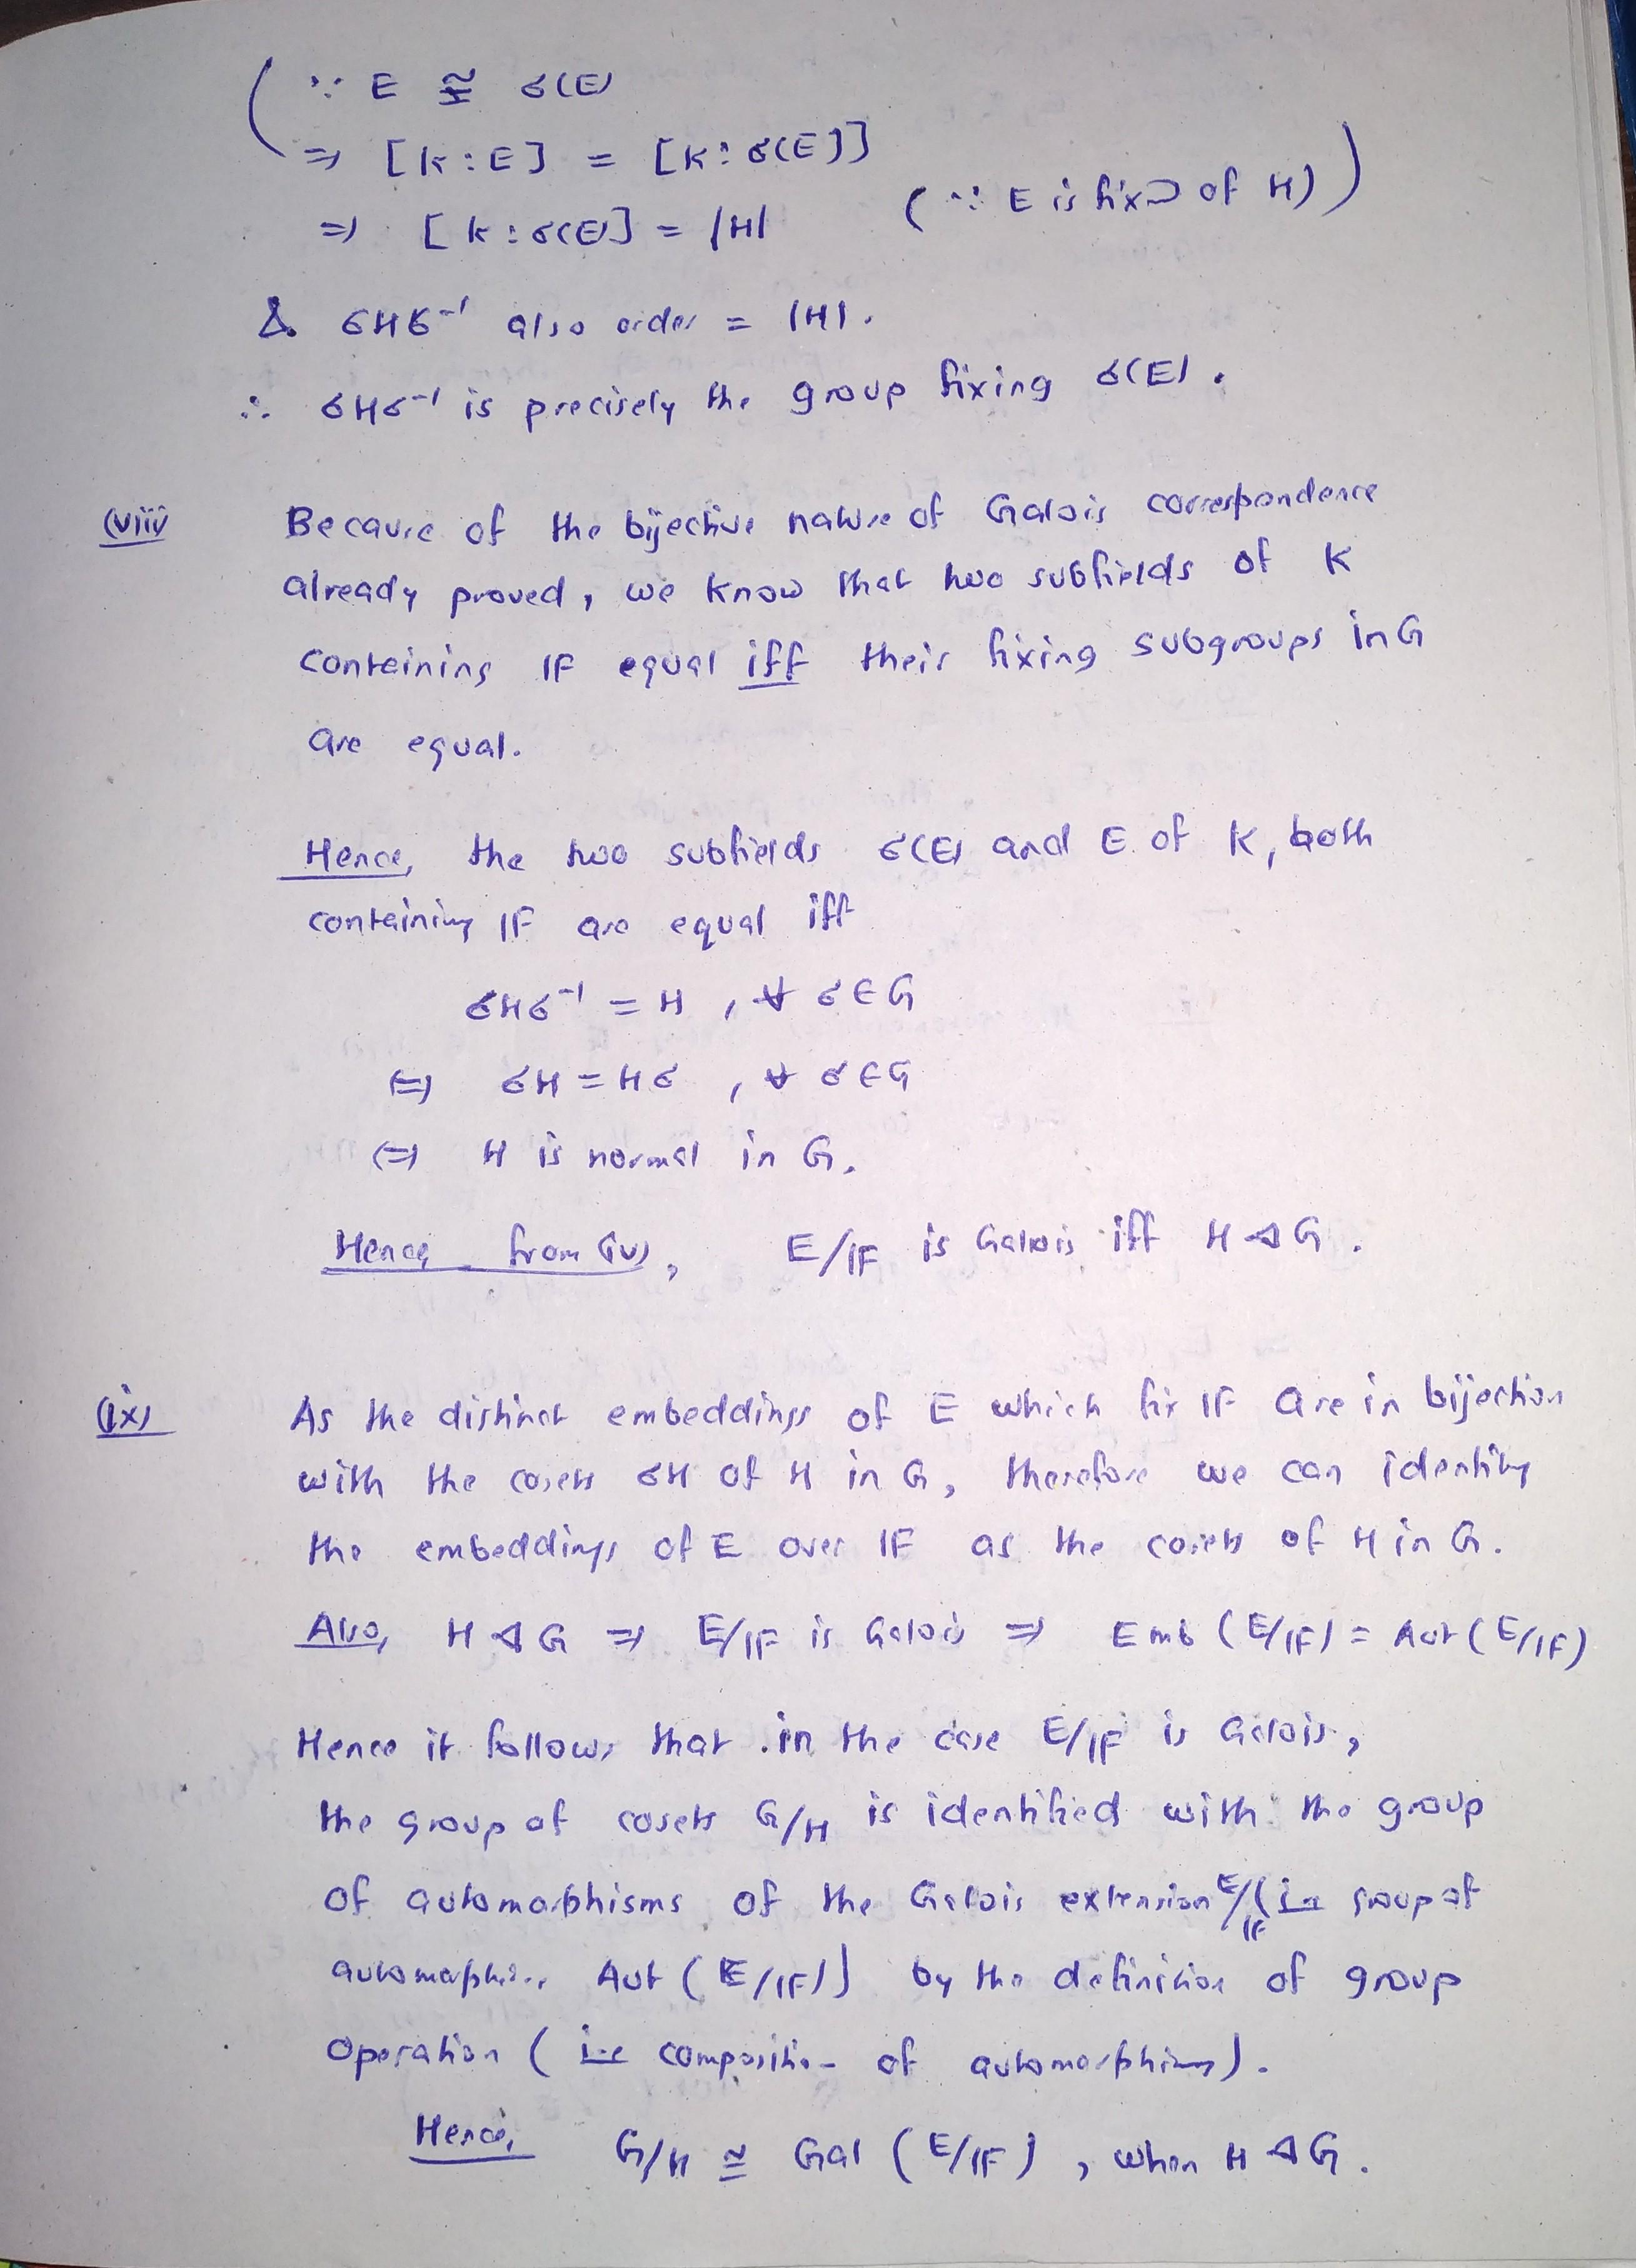 (∵ E ≅ σ(E)
⇒ [K : E] = [K : σ(E)]
⇒ [K : σ(E)] = |H| (∵ E is fix of H))
& σHσ⁻¹ also order = |H|.
∴ σHσ⁻¹ is precisely the group fixing σ(E).
(viii) Because of the bijective nature of Galois correspondence
already proved, we know that two subfields of K
containing IF equal iff their fixing subgroups in G
are equal.
Hence, the two subfields σ(E) and E of K, both
containing IF are equal iff
σHσ⁻¹ = H , ∀ σ ∈ G
⇔ σH = Hσ , ∀ σ ∈ G
⇔ H is normal in G.
Hence, from, E/IF is Galois iff H ⊲ G.
(ix) As the distinct embeddings of E which fix IF are in bijection
with the cosets σH of H in G, therefore we can identify
the embeddings of E over IF as the cosets of H in G.
Also, H ⊲ G ⇒ E/IF is Galois ⇒ Emb (E/IF) = Aut (E/IF)
Hence it follows that in the case E/IF is Galois,
the group of cosets G/H is identified with the group
of automorphisms of the Galois extension E/IF (i.e group of
automorphisms Aut (E/IF)) by the definition of group
operation ( i.e composition of automorphisms).
Hence, G/H ≅ Gal (E/IF) , when H ⊲ G.